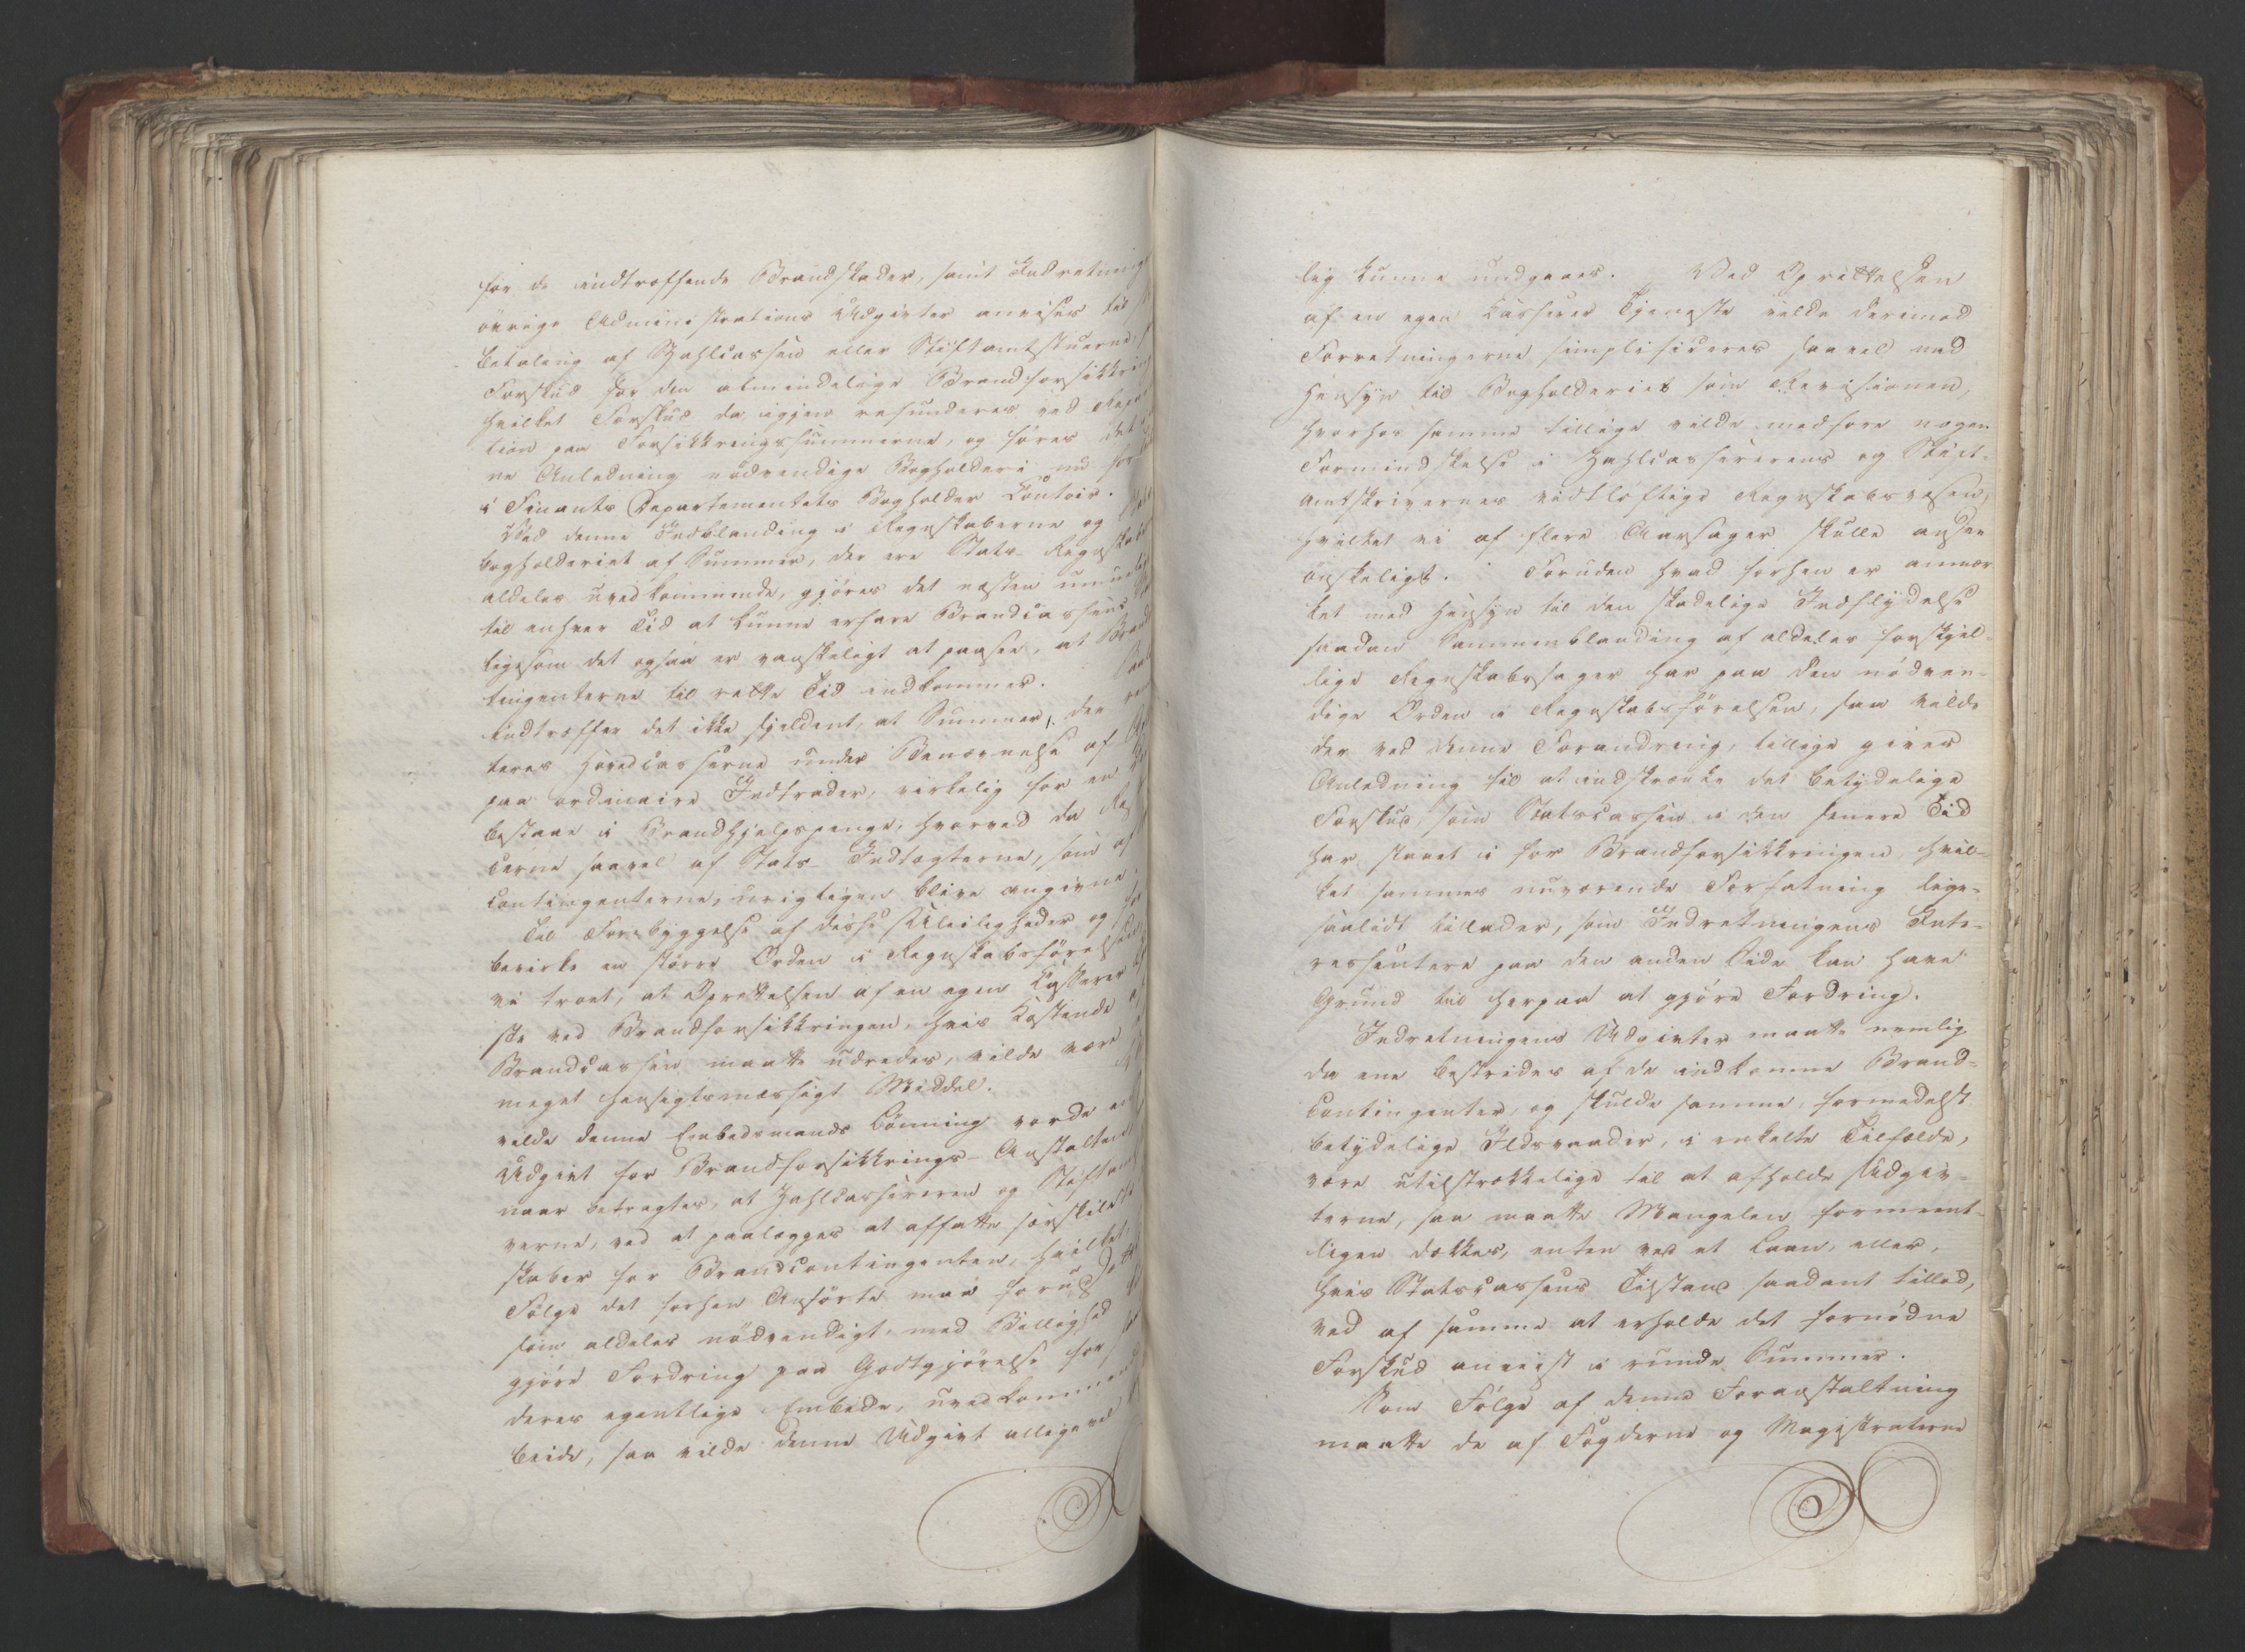 for de indtræffende Brandskader, samt Indretning
övrige Administrations Udgivter anvises til
Betaling af Zahlcassen eller Stiftamtstuerne,
Forskud for den almindelige Brandforsikkrin
hvilket Forskud da igjen refunderes ved Repar
tion paa Forsikkringssummerne, og föres det i
ne Anledning nödvendige Bogholderi nu for
i Finants Departementets Bogholder Contoir.
Ved denne Indblanding i Regnskaberne og
Bogholderiet af Summer, der ere Stats-Regnskabet
aldeles uvedkommende, gjöres det næsten umuelig
til enhver Tid at kunne erfare Brandcassens
ligesom det ogsaa er vanskeligt at paasee, at Brand
tingenterne til rette Tid indkommer.
indtræffer det ikke sjeldent, at Summer, der
teres Hovedcasserne under Benævnelse af
paa ordinaire Indtrader, virkelig for en
bestaae i Brandhjelpspenge, hvorved da
cerne saavel af Stats-Indtægterne, som af
Contingenterne, urigtigen blive angivne.
Til Forebyggelse af disse Uleiligheder og
bevirke en större Orden i Regnskabsförelsen,
vi troet, at Oprettelsen af en egen Casserer
ste ved Brandforsikkringen, hvis Kostende
Brandcassen maatte udredes, vilde være
meget hensigtsmæssigt Middel.
vilde denne Embedsmands Lönning vorde en
Udgivt for Brandforsikkrings-Anstalten
naar betragtes, at Zahlcassereren og Stiftam
verne, ved at paalægges at affatte særskilte
skaber for Brandcontingenten, hvilket
Fölge det forhen Anförte maa forud
som aldeles nödvendigt, med Billighed
gjöre Fordring paa Godtgjörelse for
deres egentlige Embede, uvedkommend
beide, saa vilde denne Udgivt alligevel
lig kunne undgaaes. Ved Oprettelsen
af en egen Casserer Tjeneste vilde derimod
Forretningerne simplificeres saavel med
Hensyn til Bogholderiet som Revisionen,
hvorhos samme tillige vilde medföre nogen
Formindskelse i Zahlcassererens og Stift-
amtskrivernes vidtlöftige Regnskabsvæsen,
hvilket vi af flere Aarsager skulle ansee
önskeligt. Foruden hvad forhen er anmær
ket med Hensyn til den skadelige Indflydelse
saadan Sammenblanding af aldeles forskjel-
lige Regnskabssager har paa den nödven-
dige Orden i Regnskabsförelsen, saa vilde
der ved denne Forandring, tillige gives
Anledning til at indskrænke det betydelige
Forskud, som Statscassen i den senere Tid
har staaet i for Brandforsikkringen, hvil-
ket sammes nuværende Forfatning lige-
saalidt tillader, som Indretningens Inte-
ressentere paa den anden Side kan have
Grund til herpaa at gjöre Fordring.
Indretningens Udgivter maatte nemlig
da ene bestrides af de indkomne Brand-
Contingenter, og skulde samme, formedelst
betydelige Ildsvaader, i enkelte Tilfælde,
være utilstrækkelige til at afholde Udgiv-
terne, saa maatte Mangelen formeent-
ligen dækkes, enten ved et Laan, eller,
hvis Statscassens Tilstand saadant tillod,
ved af samme at erholde det fornödne
Forskud anviist i runde Summer.
Som Fölge af denne Foranstaltning
maatte de af Fogderne og Magistraterne